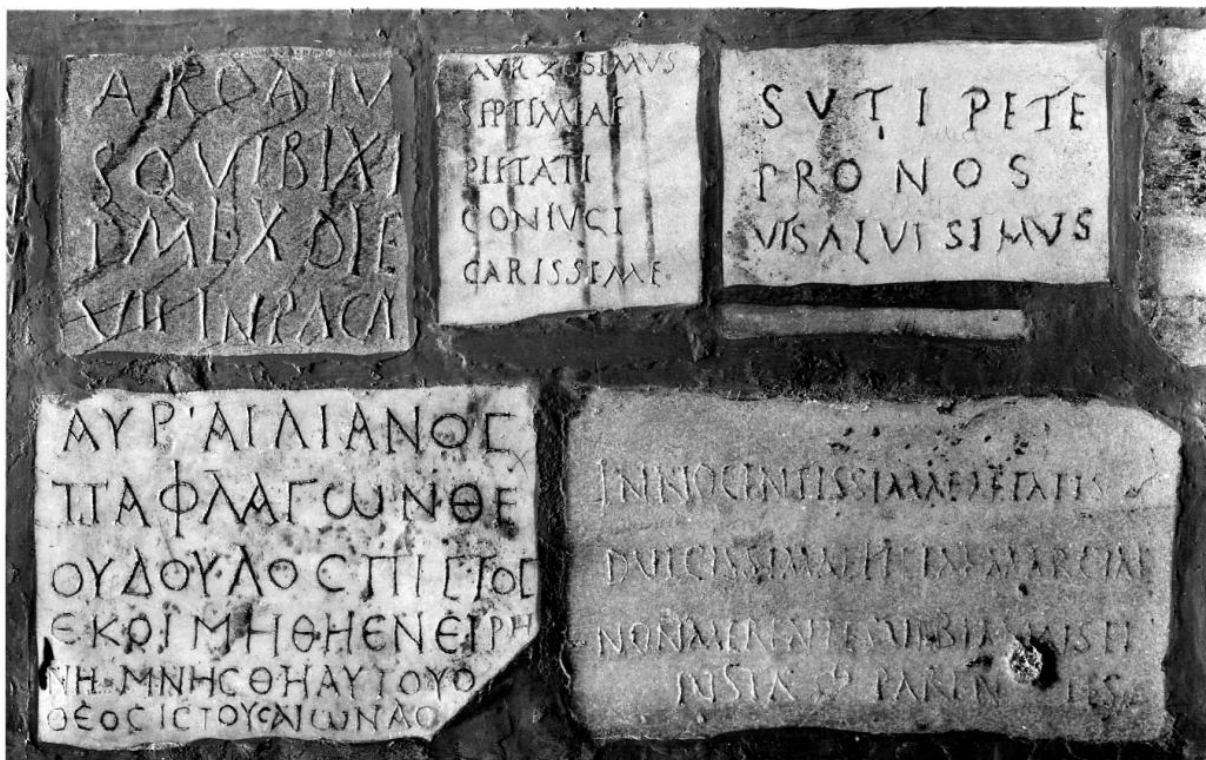 ARDAIV
SQVIBIXI
IMEXDIE
VIIINPACA
AVRZOSIMVS
SEPTIMIAE
PIETATI
CONIVGI
CARISSIME
SVTI PETE
PRO NOS
VTSALVI SIMVS
ΑΥΡ'ΑΙΛΙΑΝΟϹ
ΠΑΦΛΑΓΩΝΘΕ
ΟΥΔΟΥΛΟϹΠΙϹΤΟϹ
ΕΚΟΙΜΗΘΗΕΝΕΙΡΗ
ΝΗ·ΜΝΗϹΘΗΑΥΤΟΥΟ
ΘΕΟϹΙϹΤΟΥϹΑΙΩΝΑϹ
INNOCENTISSIMAEAETATIS
DULCISSIMAE
NONMERENTES
PAREN TES